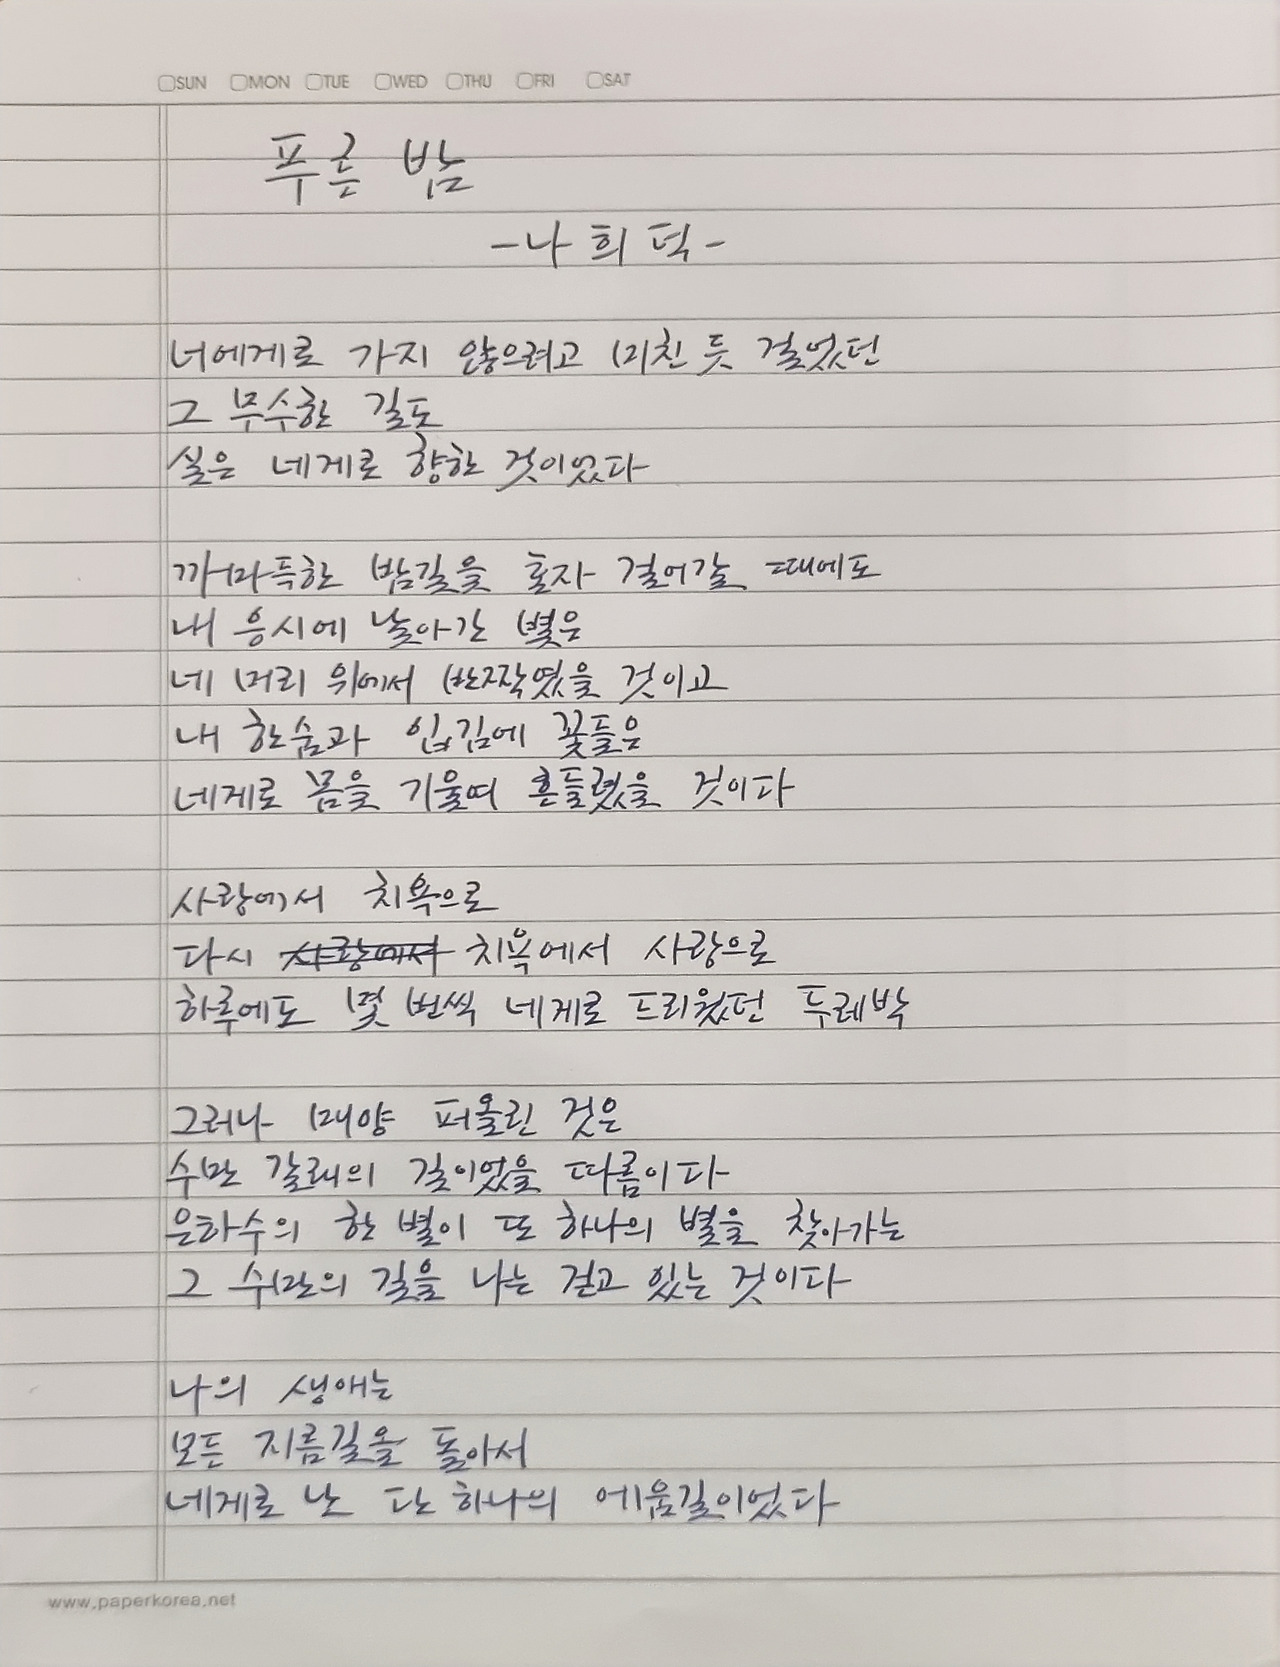 SUN MON TUE WED THU FRI SAT
푸른 밤
-나희덕-
너에게로 가지 않으려고 미친 듯 걸었던
그 무수한 길도
실은 네게로 향한 것이었다
까마득한 밤길을 혼자 걸어갈 때에도
내 응시에 날아간 별은
네 머리 위에서 반짝였을 것이고
내 한숨과 입김에 꽃들은
네게로 몸을 기울여 흔들렸을 것이다
사랑에서 치욕으로
다시 사랑에서 치욕에서 사랑으로
하루에도 몇 번씩 네게로 드리웠던 두레박
그러나 매양 퍼올린 것은
수만 갈래의 길이었을 따름이다
은하수의 한 별이 또 하나의 별을 찾아가는
그 수만의 길을 나는 걷고 있는 것이다
나의 생애는
모든 지름길을 돌아서
네게로 난 단 하나의 에움길이었다
www.paperkorea.net